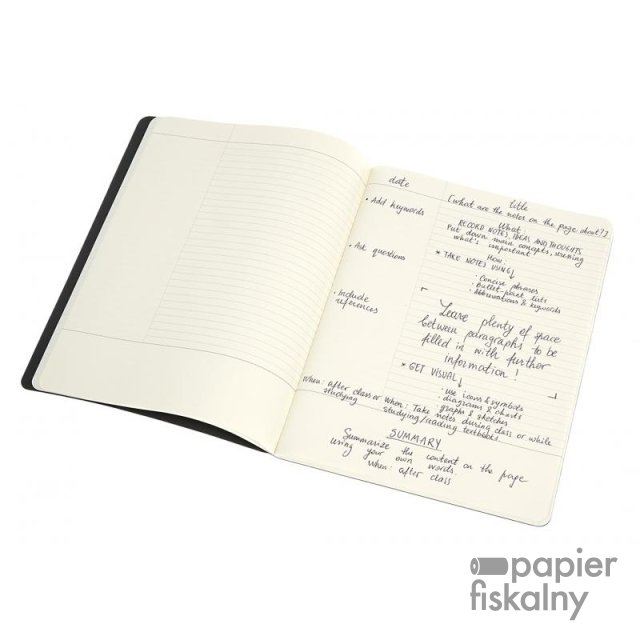 date
title
[what are the notes on the page about?]
• Add keywords
• Ask questions
• Include
references
When: after class or
studying
What
RECORD NOTES, IDEAS AND THOUGHTS
Put down main concepts, writing
what's important
How:
* TAKE NOTES USING
• Concise phrases
• Bullet-point lists
• Abbreviations & keywords
Leave plenty of space
between paragraphs to be
filled in with further
information!
* GET VISUAL
• use icons & symbols
diagrams & charts
graphs & sketches
When: Take notes during class or while
studying/reading textbooks.
SUMMARY
Summarize the content on the page
using your own words.
When: after class
papier
fiskalny